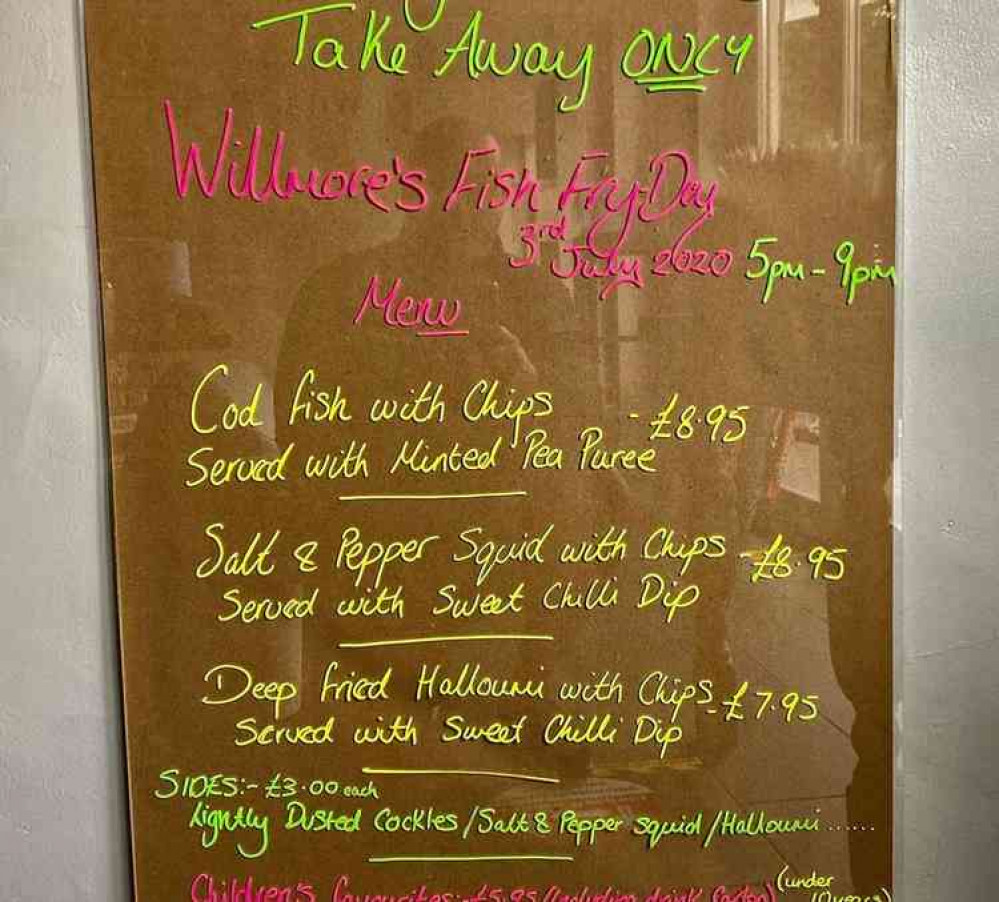 Take Away ONLY
Willmore's Fish FryDay
3rd July 2020 5pm - 9pm
Menu
Cod fish with Chips - £8.95
Served with Minted Pea Puree
Salt & Pepper Squid with Chips - £8.95
Served with Sweet Chilli Dip
Deep fried Halloumi with Chips - £7.95
Served with Sweet Chilli Dip
SIDES:- £3.00 each
Lightly Dusted Cockles / Salt & Pepper squid / Halloumi ......
Children's favourites:- £5.95 (including drink carton) (under 10 years)